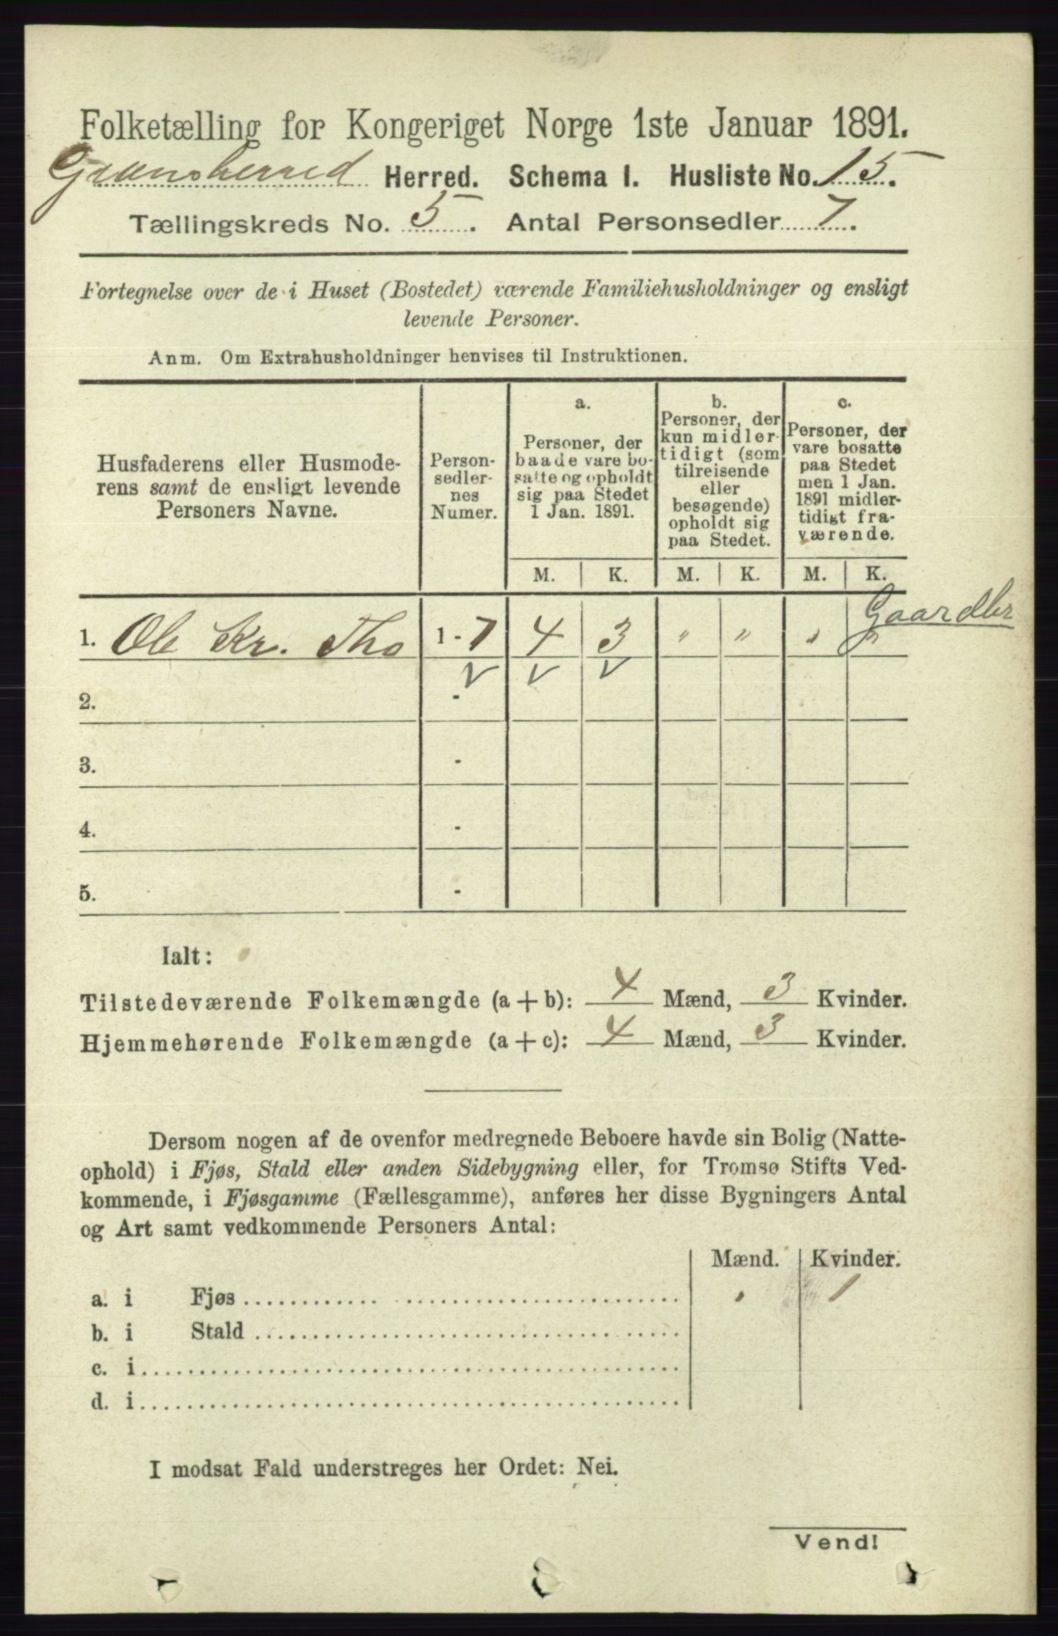 Folketælling for Kongeriget Norge 1ste Januar 1891.
Gransherred Herred. Schema I. Husliste No. 15.
Tællingskreds No. 5. Antal Personsedler 7.
Fortegnelse over de i Huset (Bostedet) værende Familiehusholdninger og ensligt
levende Personer.
Anm. Om Extrahusholdninger henvises til Instruktionen.
Husfaderens eller Husmode-
rens samt de ensligt levende
Personers Navne.
Person-
sedler-
nes
Numer.
a.
Personer, der
baade vare bo-
satte og opholdt
sig paa Stedet
1 Jan. 1891.
b.
Personer, der
kun midler-
tidigt (som
tilreisende
eller
besøgende)
opholdt sig
paa Stedet.
c.
Personer, der
vare bosatte
paa Stedet
men 1 Jan.
1891 midler-
tidigt fra-
værende.
M. K. M. K. M. K.
1. Ole Kr. Tho 1 - 7 4 3 " " " Gaardbr
2. -
3. -
4. -
5. -
Ialt:
Tilstedeværende Folkemængde (a + b): 4 Mænd, 3 Kvinder.
Hjemmehørende Folkemængde (a + c): 4 Mænd, 3 Kvinder.
Dersom nogen af de ovenfor medregnede Beboere havde sin Bolig (Natte-
ophold) i Fjøs, Stald eller anden Sidebygning eller, for Tromsø Stifts Ved-
kommende, i Fjøsgamme (Fællesgamme), anføres her disse Bygningers Antal
og Art samt vedkommende Personers Antal:
Mænd. Kvinder.
a. i Fjøs 1
b. i Stald
c. i
d. i
I modsat Fald understreges her Ordet: Nei.
Vend!